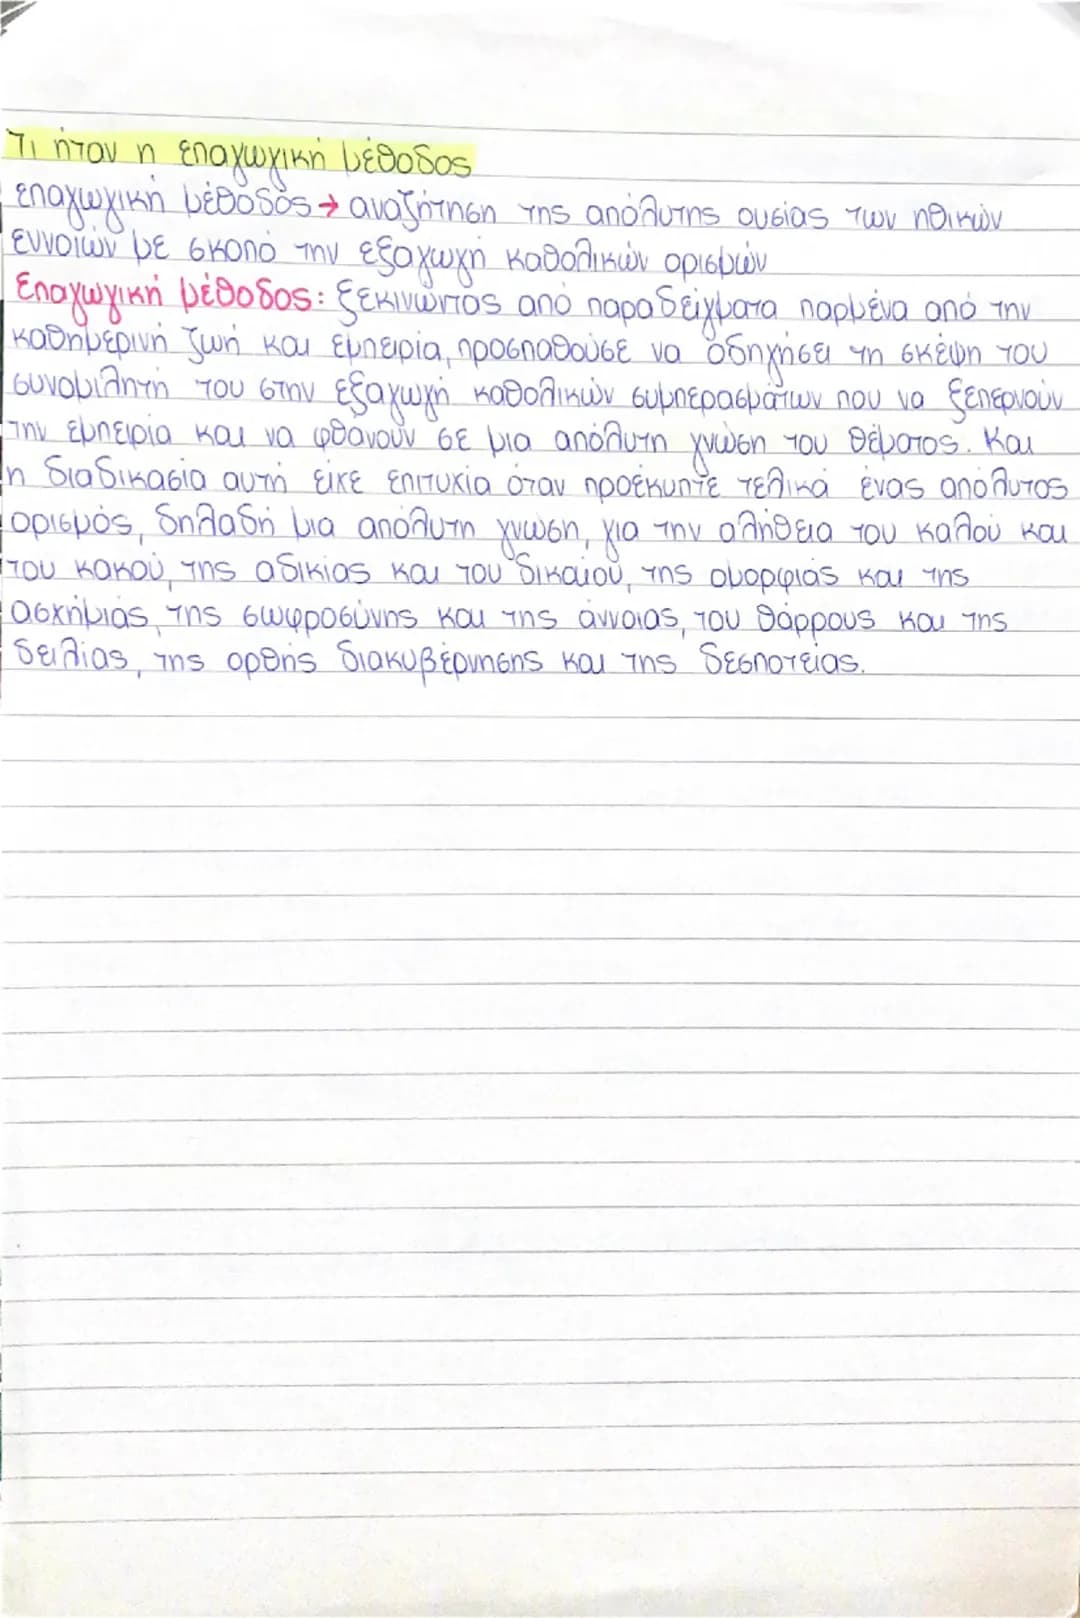 Τι ήταν η επαγωγική μέθοδος
επαγωγική μέθοδος → αναζήτηση της απόλυτης ουσίας των ηθικών
εννοιών με σκοπό την εξαγωγή καθολικών ορισμών
Επαγωγική μέθοδος: ξεκινώντας από παραδείγματα παρμένα από την
καθημερινή ζωή και εμπειρία, προσπαθούσε να οδηγήσει τη σκέψη του
συνομιλητή του στην εξαγωγή καθολικών συμπερασμάτων που να ξεπερνούν
την εμπειρία και να φθάνουν σε μια απόλυτη γνώση του θέματος. Και
η διαδικασία αυτή είχε επιτυχία όταν προέκυπτε τελικά ένας απόλυτος
ορισμός, δηλαδή μια απόλυτη γνώση, για την αλήθεια του καλού και
του κακού, της αδικίας και του δικαίου, της ομορφιάς και της
ασχήμιας, της σωφροσύνης και της άννοιας, του θάρρους και της
δειλίας, της ορθής διακυβέρνησης και της δεσποτείας.